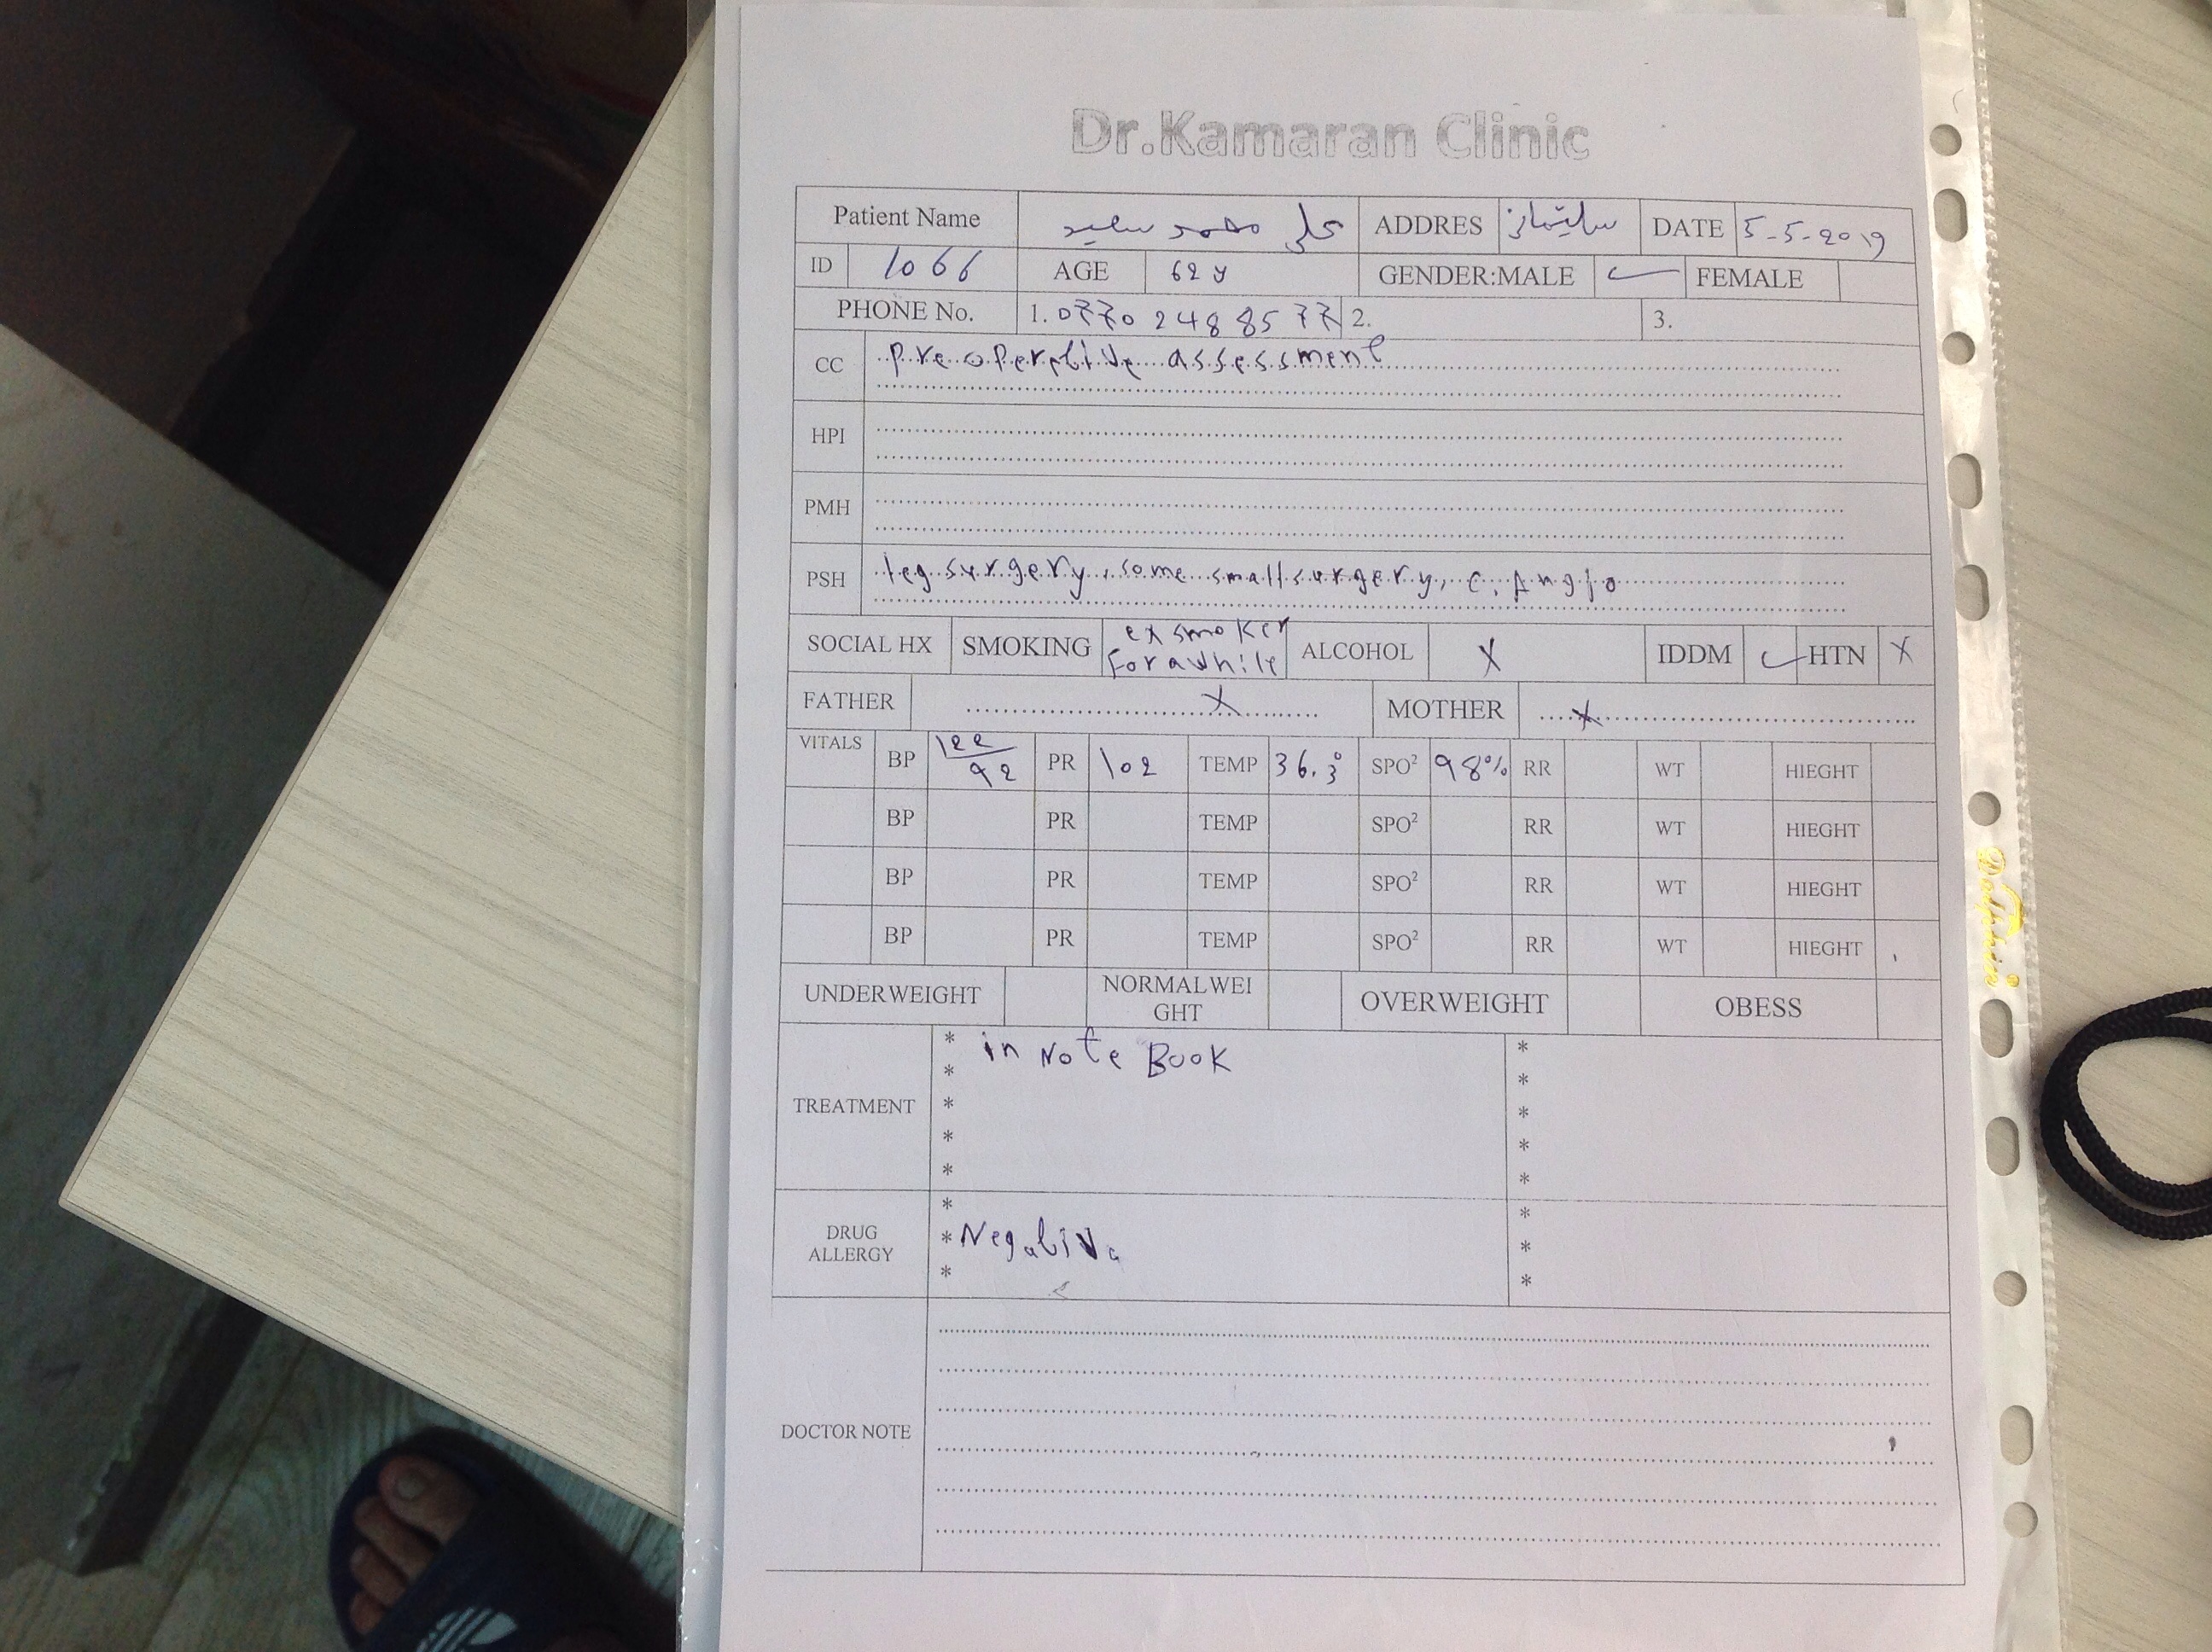 Dr.Kamaran Clinic
Patient Name علي محمد سعيد ADDRES سلێمانى DATE 5-5-2019
ID 1066 AGE 62 y GENDER:MALE ✓ FEMALE
PHONE No. 1. 0770 248 85 77 2. 3.
CC pre operative assessment
HPI
PMH
PSH leg surgery, some small surgery, C. Angio
SOCIAL HX SMOKING ex smoker for awhile ALCOHOL X IDDM ✓ HTN X
FATHER X MOTHER X
VITALS BP 122/92 PR 102 TEMP 36.3° SPO² 98% RR WT HIEGHT
BP PR TEMP SPO² RR WT HIEGHT
BP PR TEMP SPO² RR WT HIEGHT
BP PR TEMP SPO² RR WT HIEGHT
UNDERWEIGHT NORMALWEI
GHT OVERWEIGHT OBESS
TREATMENT * in Note Book *
* *
* *
* *
* *
DRUG
ALLERGY * *
* Negative *
* *
DOCTOR NOTE
Delphin